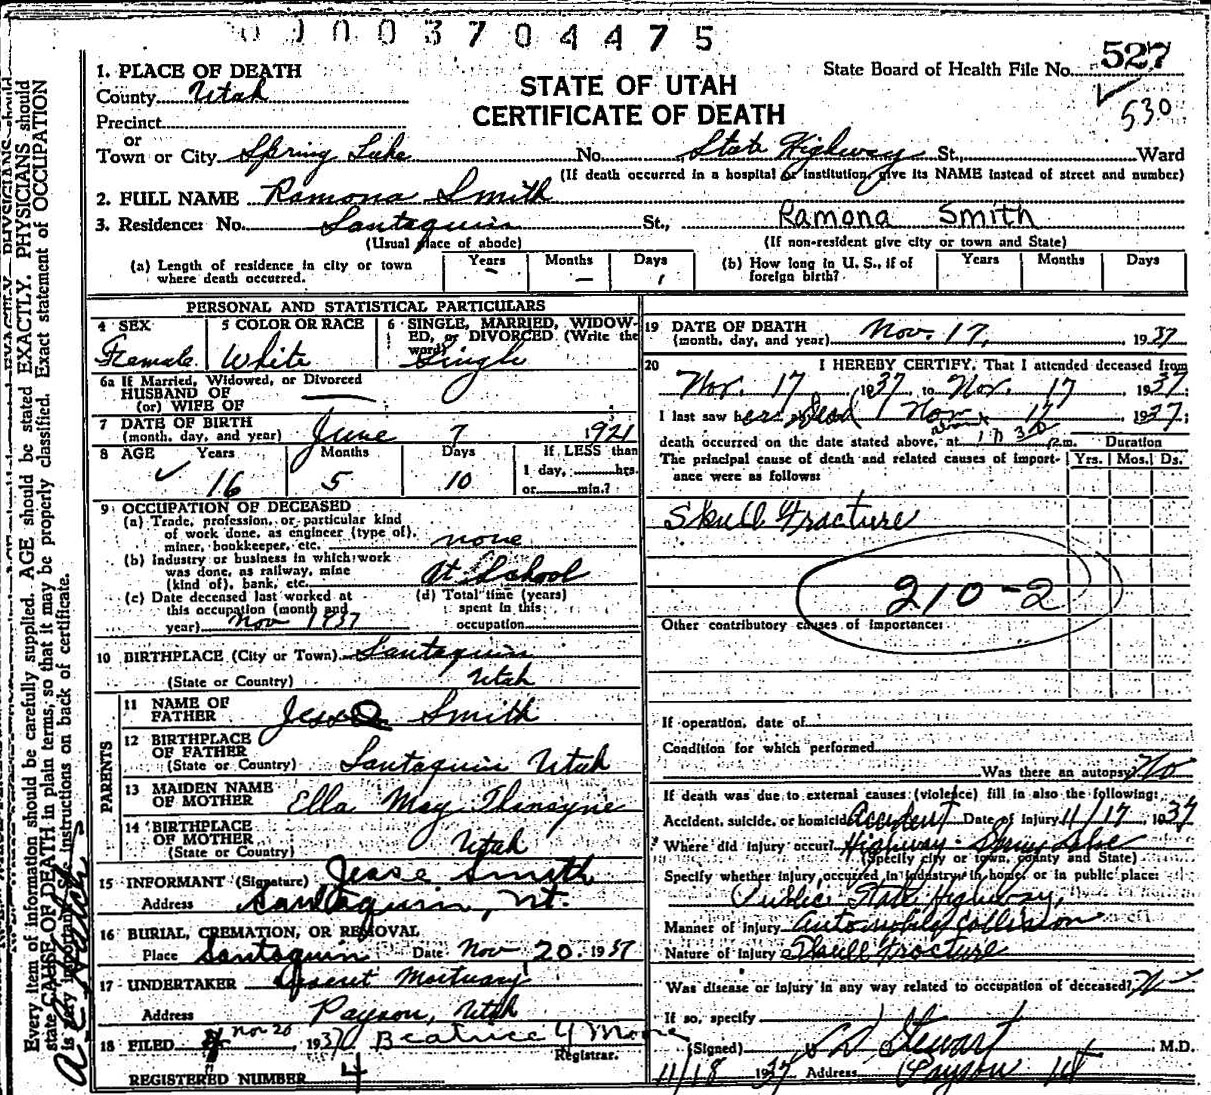 0 1 0 0 3 7 0 4 4 7 5
1. PLACE OF DEATH
County Utah
STATE OF UTAH
CERTIFICATE OF DEATH
State Board of Health File No. 527
530
Precinct
or
Town or City Spring Lake No. State Highway St., Ward
(If death occurred in a hospital or institution, give its NAME instead of street and number)
2. FULL NAME Ramona Smith
3. Residence: No. Santaquin St., Ramona Smith
(Usual place of abode) (If non-resident give city or town and State)
(a) Length of residence in city or town where death occurred. Years - Months - Days 1
(b) How long in U. S., if of foreign birth? Years Months Days
PERSONAL AND STATISTICAL PARTICULARS
4 SEX Female
5 COLOR OR RACE White
6 SINGLE, MARRIED, WIDOWED, or DIVORCED (Write the word) Single
6a If Married, Widowed, or Divorced
HUSBAND OF
(or) WIFE OF
7 DATE OF BIRTH
(month, day, and year) June 7 1921
8 AGE Years 16 Months 5 Days 10 If LESS than 1 day, hrs. or min.?
9 OCCUPATION OF DECEASED
(a) Trade, profession, or particular kind
of work done, as engineer (type of),
miner, bookkeeper, etc. none
(b) Industry or business in which work
was done, as railway, mine
(kind of), bank, etc. At School
(c) Date deceased last worked at
this occupation (month and
year) Nov 1937
(d) Total time (years)
spent in this
occupation
10 BIRTHPLACE (City or Town) Santaquin
(State or Country) Utah
PARENTS
11 NAME OF
FATHER Jesse Smith
12 BIRTHPLACE
OF FATHER
(State or Country) Santaquin Utah
13 MAIDEN NAME
OF MOTHER Ella May
14 BIRTHPLACE
OF MOTHER
(State or Country) Utah
15 INFORMANT (Signature) Jesse Smith
Address Santaquin, Ut.
16 BURIAL, CREMATION, OR REMOVAL
Place Santaquin Date Nov 20. 1937
17 UNDERTAKER Deseret Mortuary
Address Payson, Utah
18 FILED Nov 20, 1937 Beatrice Y Moore
Registrar.
REGISTERED NUMBER 4
19 DATE OF DEATH
(month, day, and year) Nov. 17, 1937
20 I HEREBY CERTIFY, That I attended deceased from
Nov. 17 1937 to Nov. 17 1937
I last saw her dead Nov 17 1937;
death occurred on the date stated above, at about p.m. Duration
The principal cause of death and related causes of importance were as follows: Yrs. Mos. Ds.
Skull Fracture
210-2
Other contributory causes of importance:
If operation, date of
Condition for which performed
Was there an autopsy No
If death was due to external causes (violence) fill in also the following:
Accident, suicide, or homicide Accident Date of injury 11/17, 1937
Where did injury occur? Highway - Spring Lake
(Specify city or town, county and State)
Specify whether injury occurred in industry, in home, or in public place:
Public State Highway,
Manner of injury Automobile Collision
Nature of injury Skull Fracture
Was disease or injury in any way related to occupation of deceased? No
If so, specify
(Signed) Stewart M.D.
11/18 1937 Address Payson Ut
Every item of information should be carefully supplied. AGE should be stated EXACTLY. PHYSICIANS should
state CAUSE OF DEATH in plain terms, so that it may be properly classified. Exact statement of OCCUPATION
is very important. See instructions on back of certificate.